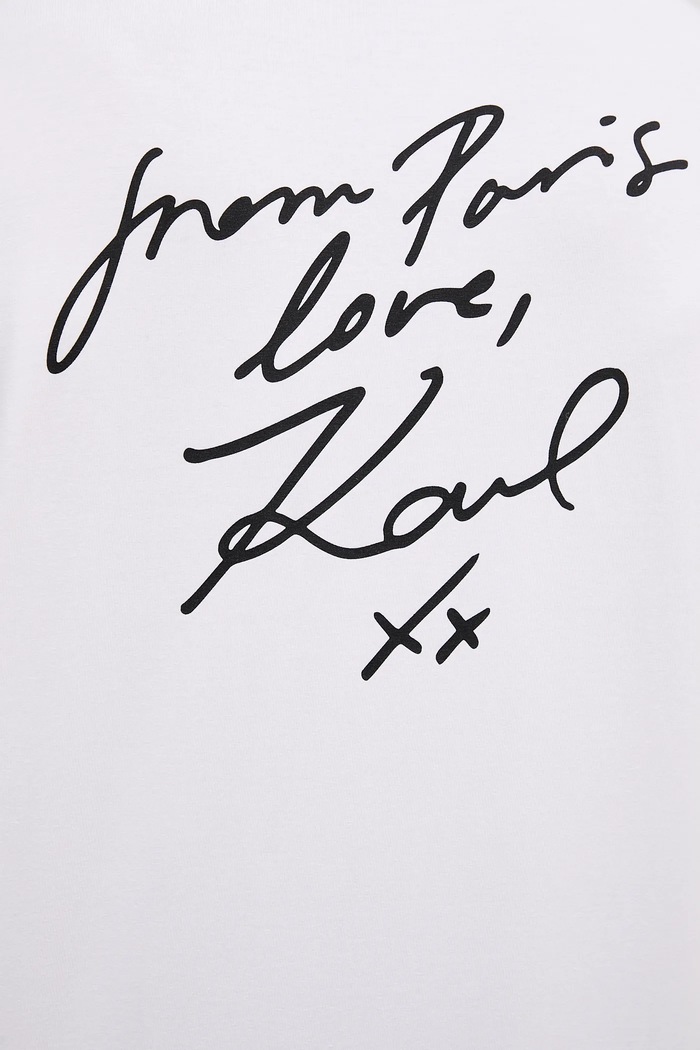 from Paris
love,
Karl
xx